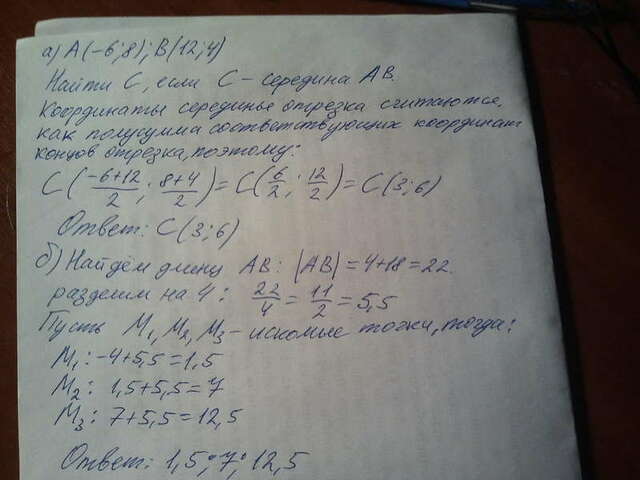 а) А(-6;8); В(12;4)
Найти С, если С - середина АВ.
Координаты середины отрезка считаются,
как полусумма соответствующих координат
концов отрезка, поэтому:
С(\frac{-6+12}{2}; \frac{8+4}{2}) = С(\frac{6}{2}; \frac{12}{2}) = С(3;6)
Ответ: С(3;6)
б) Найдём длину АВ: |АВ| = 4+18 = 22.
разделим на 4: \frac{22}{4} = \frac{11}{2} = 5,5
Пусть М₁, М₂, М₃ - искомые точки, тогда:
М₁: -4+5,5=1,5
М₂: 1,5+5,5=7
М₃: 7+5,5=12,5
Ответ: 1,5; 7; 12,5